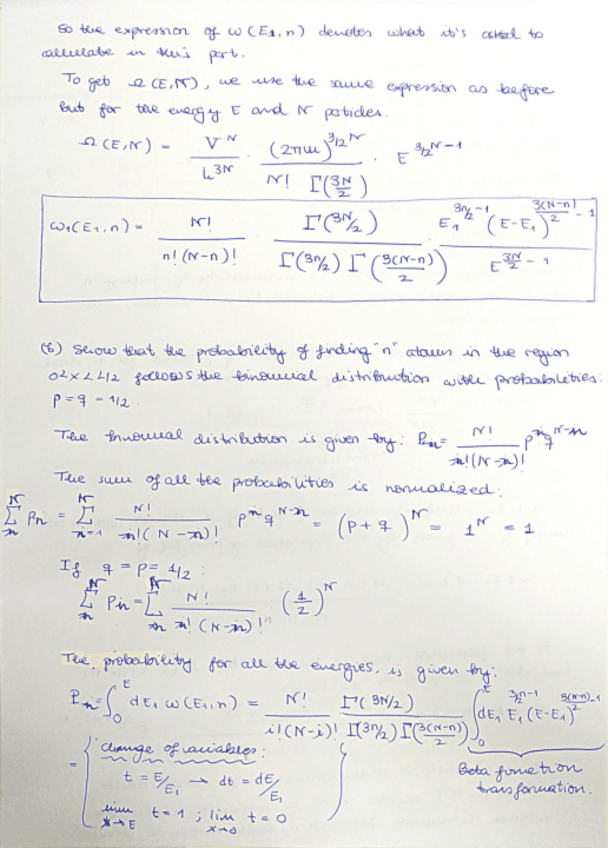 So the expression of ω(E₁,n) denotes what it's asked to
calculate in this part.
To get Ω(E,N), we use the same expression as before
but for the energy E and N particles.
Ω(E,N) = V^N / h^{3N} · (2πm)^{3/2 N} / (N! Γ(3N/2)) · E^{3/2 N - 1}
ω₁(E₁,n) = N! / (n!(N-n)!) · Γ(3N/2) / (Γ(3n/2) Γ(3(N-n)/2)) · E₁^{3n/2 - 1} (E-E₁)^{3(N-n)/2 - 1} / E^{3N/2 - 1}
(b) Show that the probability of finding "n" atoms in the region
0<x<L/2 follows the binomial distribution with probabilities:
p = q = 1/2.
The binomial distribution is given by: Pₙ = N! / (n!(N-n)!) p^n q^{N-n}
The sum of all the probabilities is normalized:
Σ_n^N Pₙ = Σ_{n=1}^N N! / (n!(N-n)!) p^n q^{N-n} = (p+q)^N = 1^N = 1
If q = p = 1/2:
Σ_n^N Pₙ = Σ_n^N N! / (n!(N-n)!) (1/2)^N
The probability for all the energies, is given by:
Pₙ = ∫₀^E dE₁ ω(E₁,n) = N! / (i!(N-i)!) Γ(3N/2) / (Γ(3n/2) Γ(3(N-n)/2)) ∫₀^E dE₁ E₁^{3/2 n - 1} (E-E₁)^{3(N-n)/2 - 1}
= { change of variables:
t = E/E₁ → dt = dE/E₁
lim x→E t = 1 ; lim x→0 t = 0 }
Beta function
transformation.